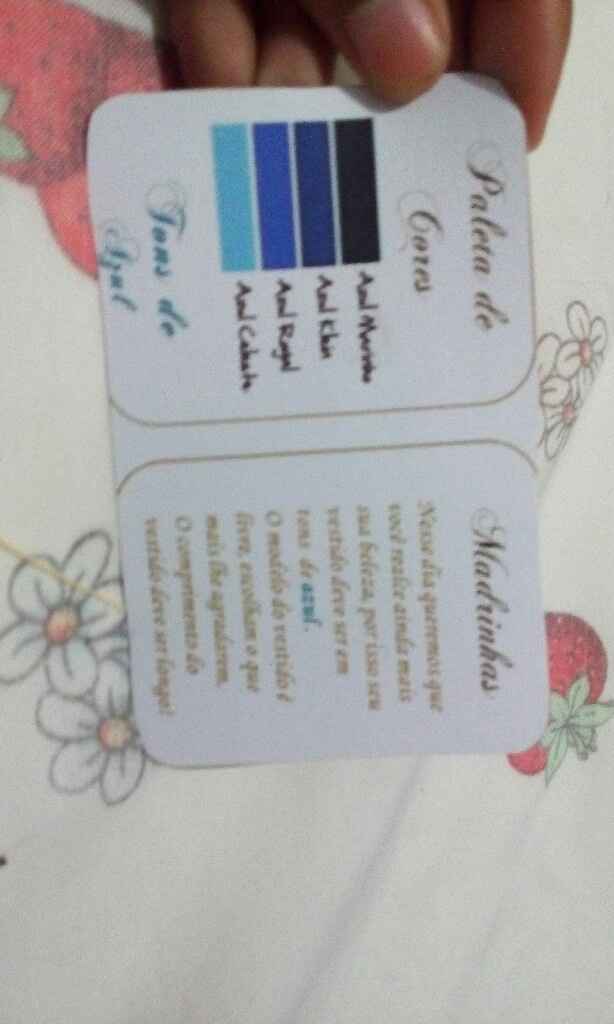 Paleta de
Cores
Azul Marinho
Azul Klein
Azul Royal
Azul Celeste
Tons de
Azul
Madrinhas
Nesse dia queremos que
você realce ainda mais
sua beleza, por isso seu
vestido deve ser em
tons de azul.
O modelo do vestido é
livre, escolham o que
mais lhe agradarem.
O comprimento do
vestido deve ser longo!